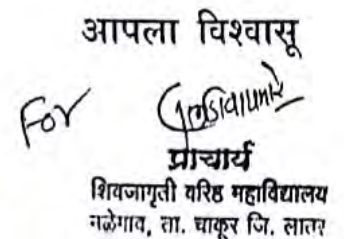 आपला विश्वासू
For
प्राचार्य
शिवजागृती वरिष्ठ महाविद्यालय
नळेगाव, ता. चाकूर जि. लातूर